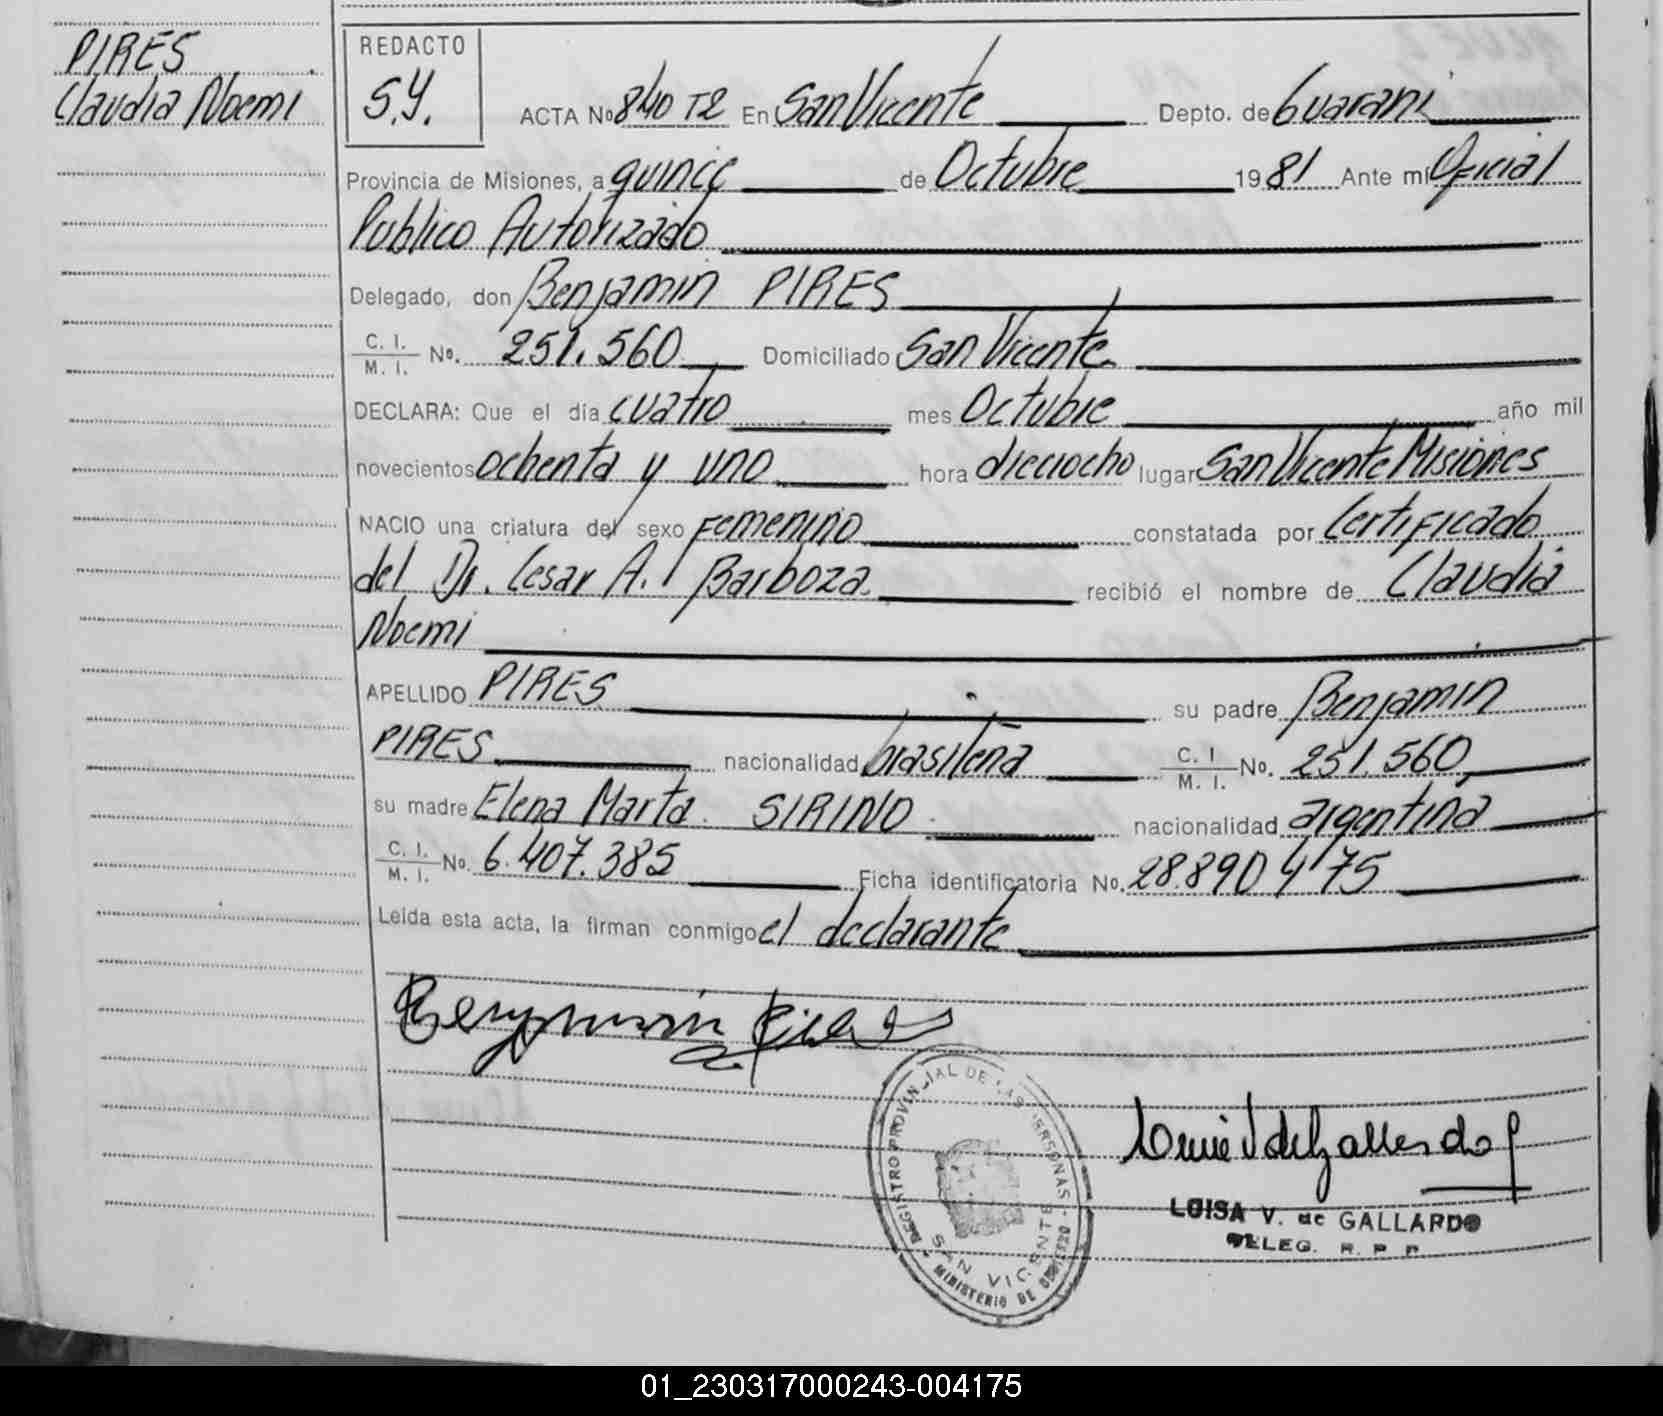 PIRES
Claudia Noemi
REDACTO
S.Y.
ACTA No 840 T2 En San Vicente Depto. de Guarani
Provincia de Misiones, a quince de Octubre 1981 Ante mí Oficial
Publico Autorizado
Delegado, don Benjamin PIRES
C. I. / M. I. No. 251.560 Domiciliado San Vicente
DECLARA: Que el día cuatro mes Octubre año mil
novecientos ochenta y uno hora dieciocho lugar San Vicente Misiones
NACIO una criatura del sexo Femenino constatada por Certificado
del Dr. Cesar A. Barboza recibió el nombre de Claudia
Noemi
APELLIDO PIRES su padre Benjamin
PIRES nacionalidad brasileña C. I. / M. I. No. 251.560
su madre Elena Marta SIRINO nacionalidad argentina
C. I. / M. I. No. 6.407.385 Ficha identificatoria No. 28.890 475
Leída esta acta, la firman conmigo el declarante
Benjamin Pires
REGISTRO PROVINCIAL DE LAS PERSONAS
SAN VICENTE
MINISTERIO DE GOBIERNO
LUISA V. de GALLARDO
DELEG. R. P. P.
01_230317000243-004175